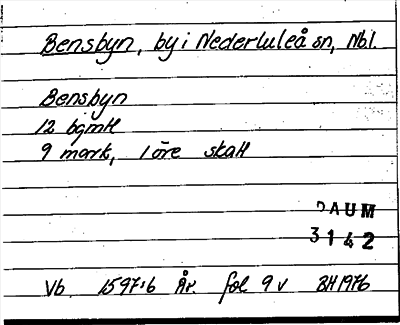 Bensbyn, by i Nederluleå sn, Nbl.
Bensbyn
12 bgmtl
9 mark, 1 öre skatt
DAUM
3142
Vb 1597:6 År. fol 9v BH 1976